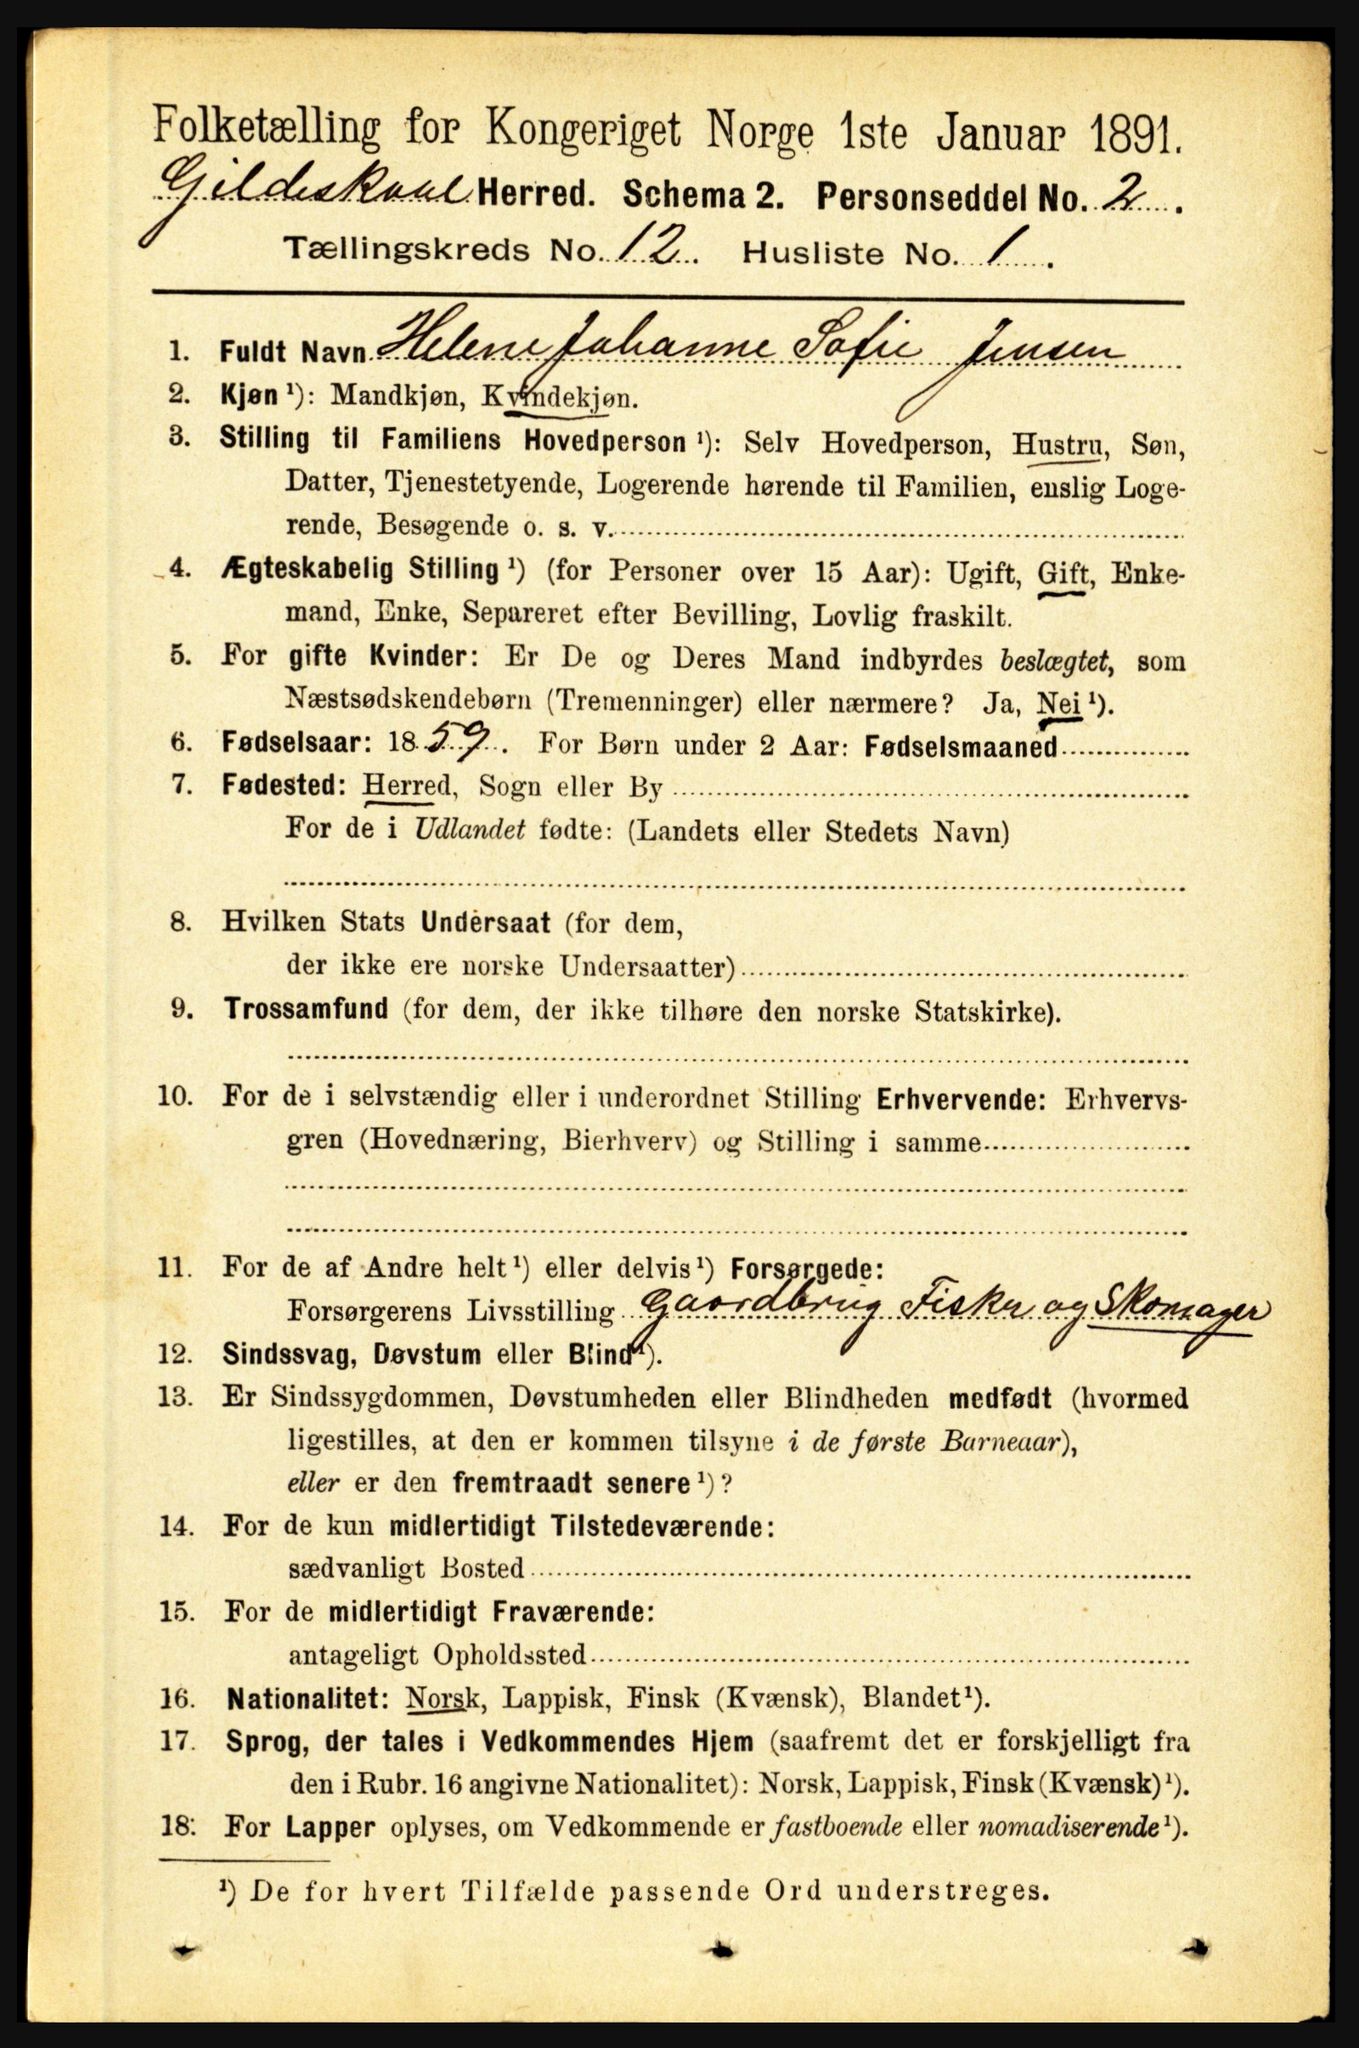 Folketælling for Kongeriget Norge 1ste Januar 1891.
Gildeskaal Herred. Schema 2. Personseddel No. 2.
Tællingskreds No. 12. Husliste No. 1.
1. Fuldt Navn Helene Johanne Sofie Jensen
2. Kjøn ¹): Mandkjøn, Kvindekjøn.
3. Stilling til Familiens Hovedperson ¹): Selv Hovedperson, Hustru, Søn,
Datter, Tjenestetyende, Logerende hørende til Familien, enslig Loge-
rende, Besøgende o. s. v.
4. Ægteskabelig Stilling ¹) (for Personer over 15 Aar): Ugift, Gift, Enke-
mand, Enke, Separeret efter Bevilling, Lovlig fraskilt.
5. For gifte Kvinder: Er De og Deres Mand indbyrdes beslægtet, som
Næstsødskendebørn (Tremenninger) eller nærmere? Ja, Nei ¹).
6. Fødselsaar: 1859. For Børn under 2 Aar: Fødselsmaaned
7. Fødested: Herred, Sogn eller By
For de i Udlandet fødte: (Landets eller Stedets Navn)
8. Hvilken Stats Undersaat (for dem,
der ikke ere norske Undersaatter)
9. Trossamfund (for dem, der ikke tilhøre den norske Statskirke).
10. For de i selvstændig eller i underordnet Stilling Erhvervende: Erhvervs-
gren (Hovednæring, Bierhverv) og Stilling i samme
11. For de af Andre helt ¹) eller delvis ¹) Forsørgede:
Forsørgerens Livsstilling Gaardbrug Fisker og Skomager
12. Sindssvag, Døvstum eller Blind ¹).
13. Er Sindssygdommen, Døvstumheden eller Blindheden medfødt (hvormed
ligestilles, at den er kommen tilsyne i de første Barneaar),
eller er den fremtraadt senere ¹)?
14. For de kun midlertidigt Tilstedeværende:
sædvanligt Bosted
15. For de midlertidigt Fraværende:
antageligt Opholdssted
16. Nationalitet: Norsk, Lappisk, Finsk (Kvænsk), Blandet ¹).
17. Sprog, der tales i Vedkommendes Hjem (saafremt det er forskjelligt fra
den i Rubr. 16 angivne Nationalitet): Norsk, Lappisk, Finsk (Kvænsk) ¹).
18. For Lapper oplyses, om Vedkommende er fastboende eller nomadiserende ¹).
¹) De for hvert Tilfælde passende Ord understreges.